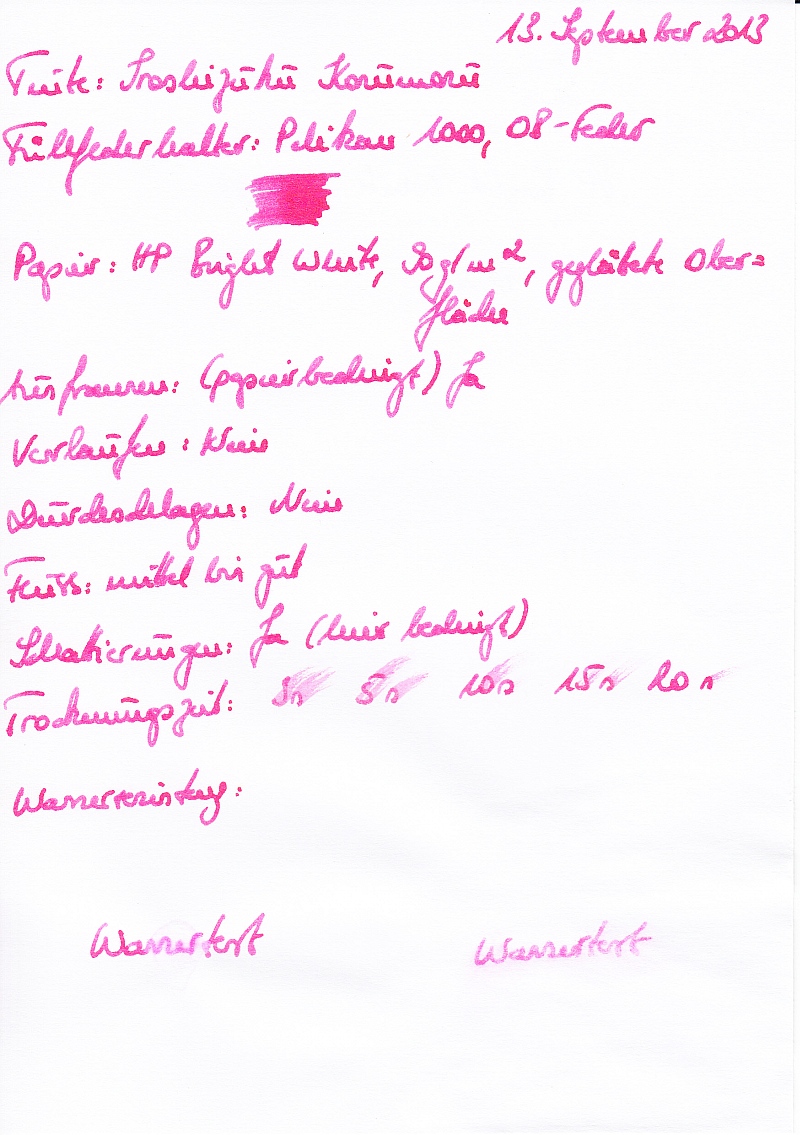 13. September 2013
Tinte: Iroshizuku Kosumosu
Füllfederhalter: Pelikan 1000, 08-Feder
Papier: HP Bright White, 90g/m², geglättete Ober=
fläche
Ausfransen: (papierbedingt) Ja
Verlaufen: Nein
Durchschlagen: Nein
Fluss: mittel bis gut
Schattierungen: Ja (hier bedingt)
Trocknungszeit: 3s 5s 10s 15s 20s
Wasserresistenz:
Wassertest Wassertest